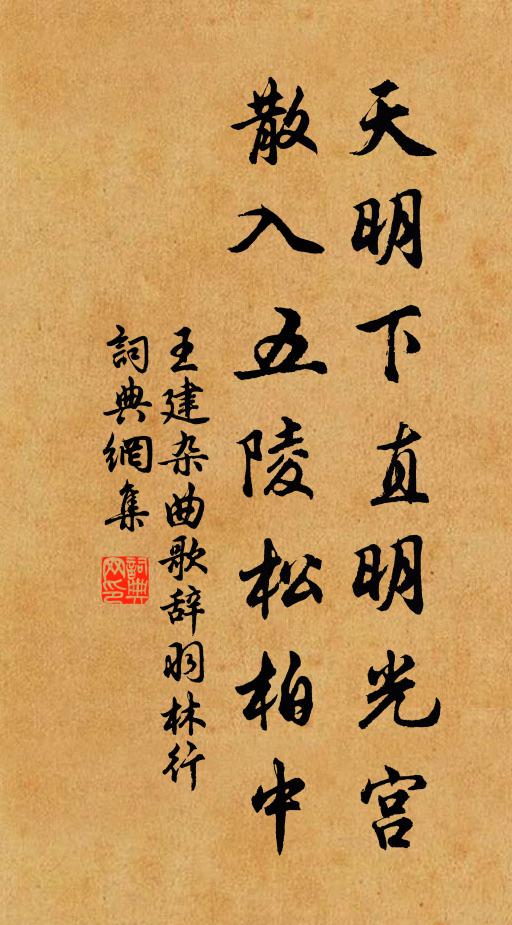 天明下直明光宫
散入五陵松柏中
王建杂曲歌辞羽林行
詞典網集
詞典网印